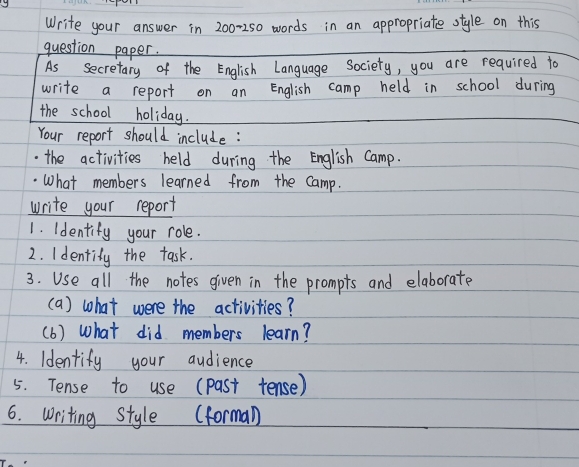 Write your answer in 200-250 words in an appropriate style on this
question paper.
As Secretary of the English Language Society, you are required to
write a report on an English Camp held in school during
the school holiday.
Your report should include :
• the activities held during the English Camp.
• What members learned from the Camp.
Write your report
1. Identify your role.
2. Identify the task.
3. Use all the notes given in the prompts and elaborate
(a) what were the activities?
(b) what did members learn?
4. Identify your audience
5. Tense to use (past tense)
6. Writing Style (formal)